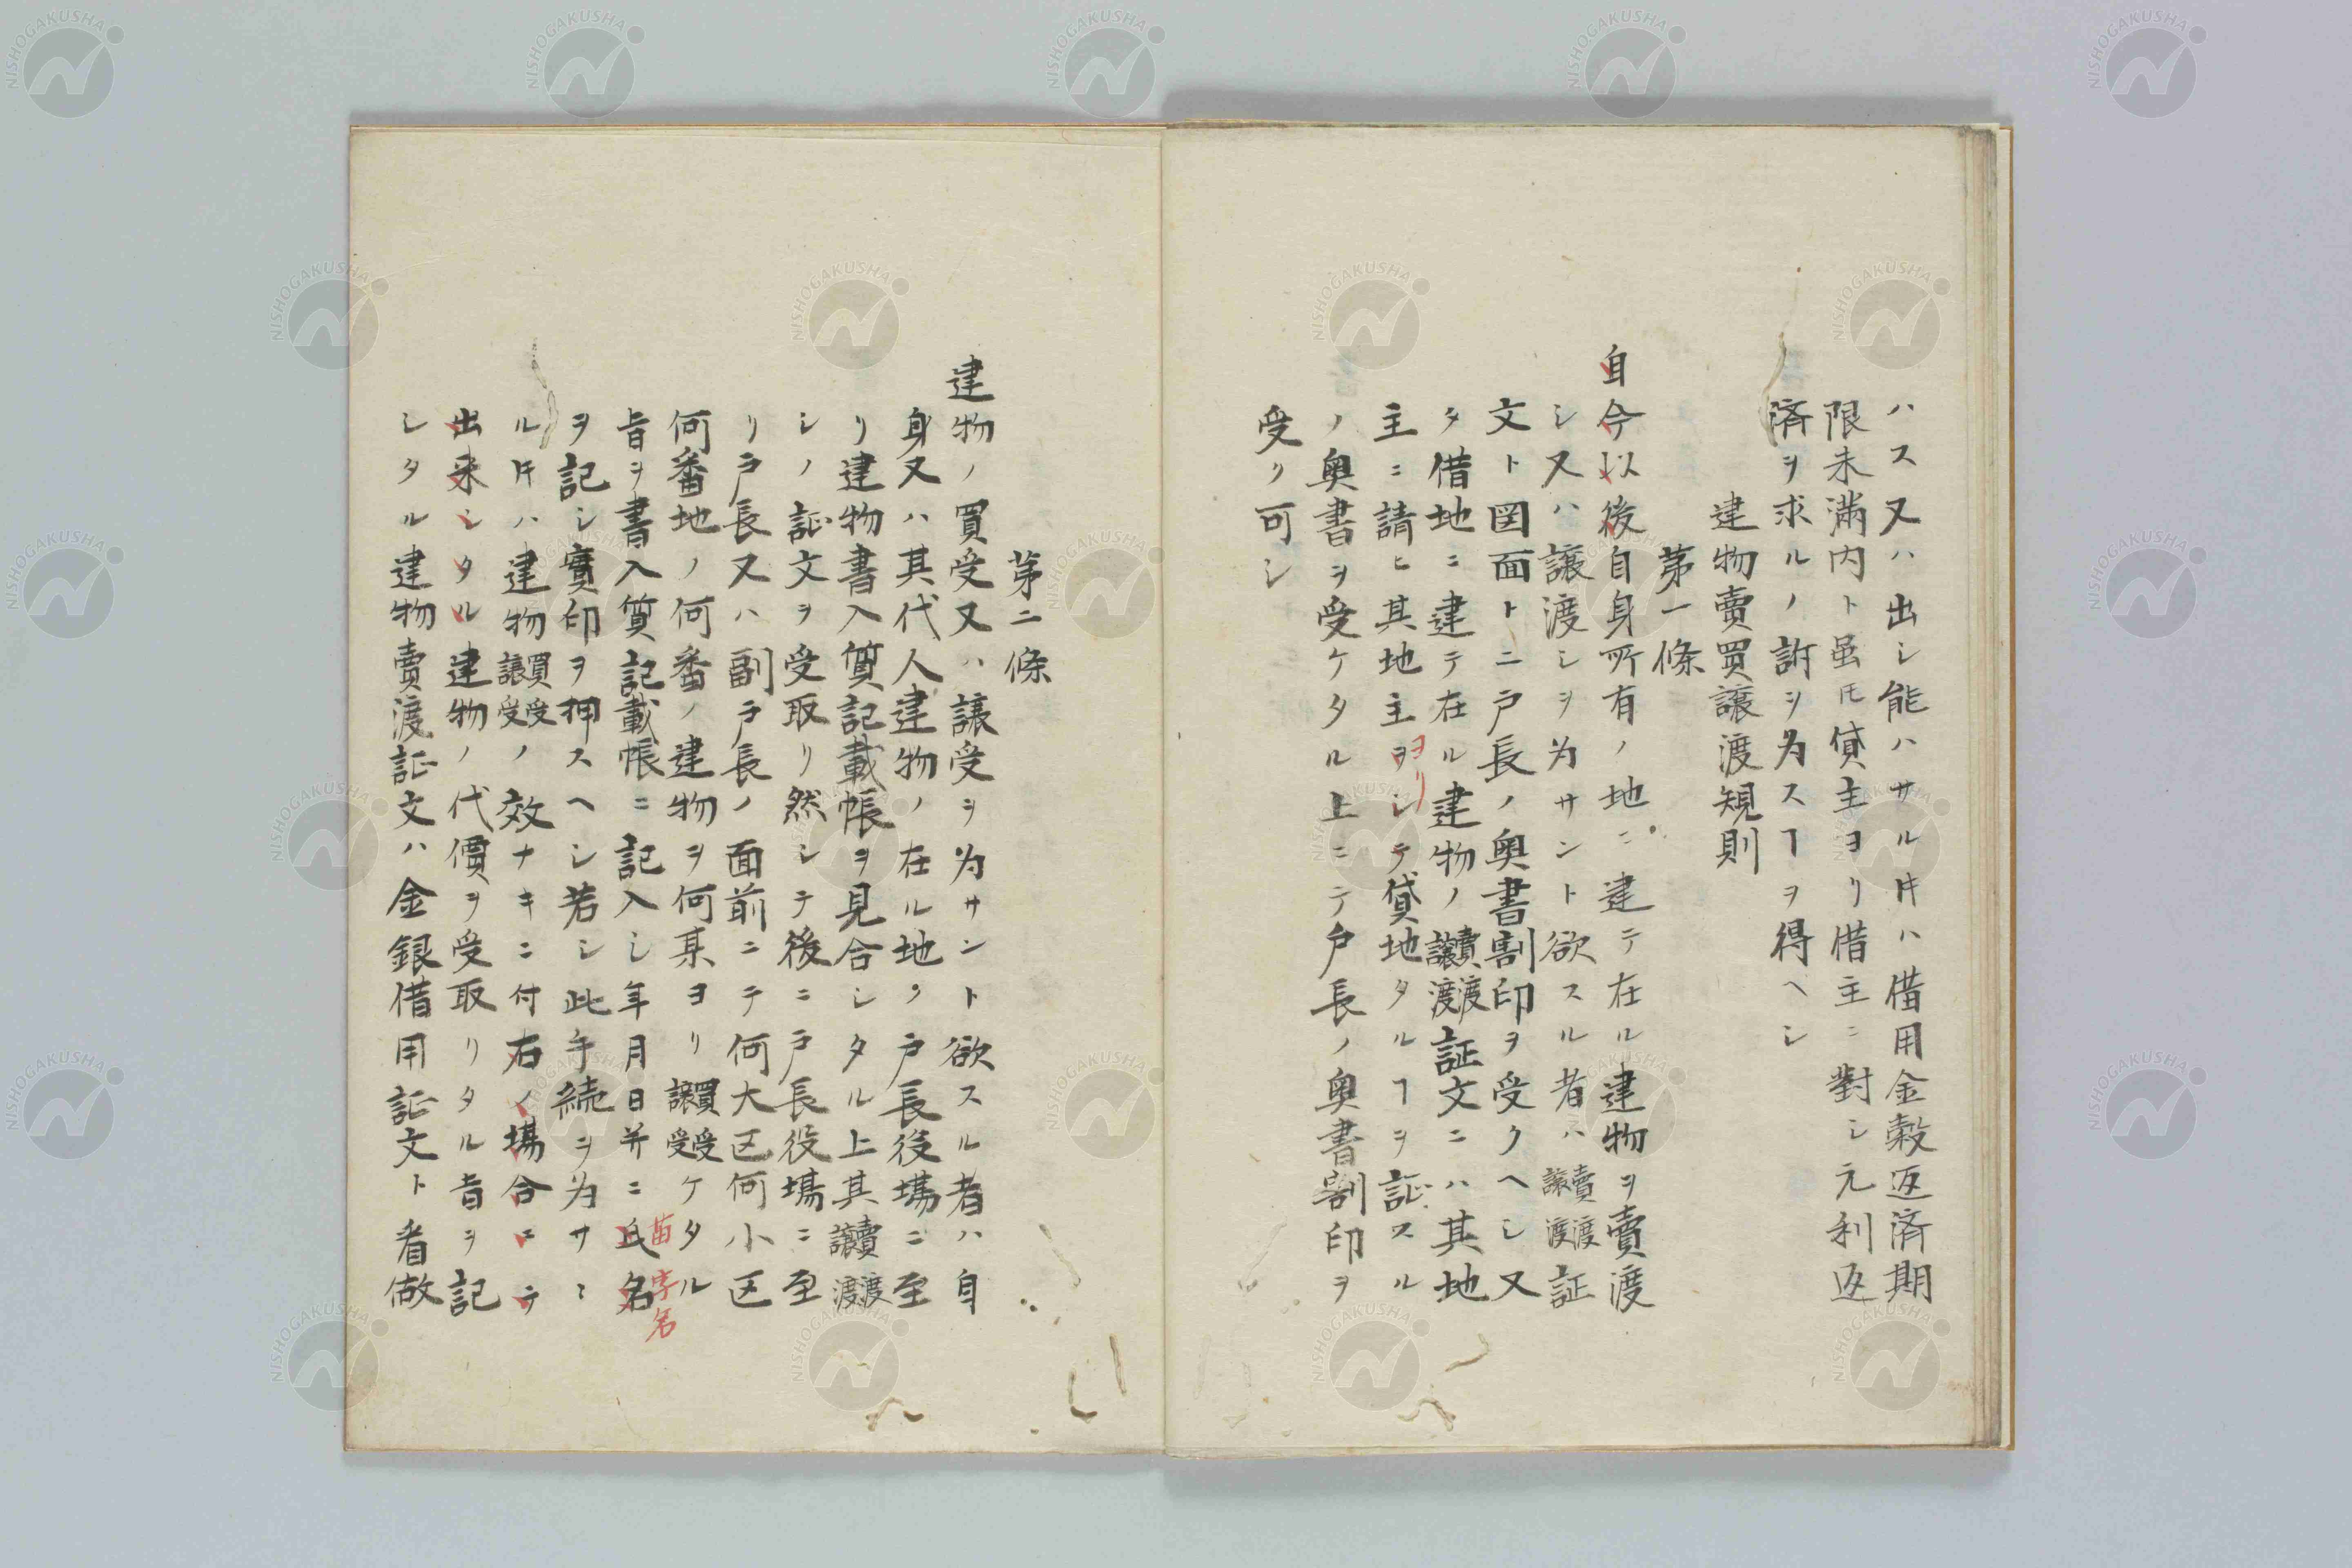 ハス又ハ出シ能ハサル片ハ借用金穀返済期
限未満内ト虽𪜈貸主ヨリ借主ニ對シ元利返
済ヲ求ルノ訴ヲ為スヿヲ得ヘシ
建物賣買譲渡規則
第一條
自今以後自身所有ノ地ニ建テ在ル建物ヲ賣渡
シ又ハ譲渡シヲ為サント欲スル者ハ賣渡譲渡証
文ト図面トニ戸長ノ奥書割印ヲ受クヘシ又
タ借地ニ建テ在ル建物ノ賣渡譲渡証文ニハ其地
主ニ請ヒ其地主ヲシテ貸地タルヿヲ証スル
ヨリ
ノ奥書ヲ受ケタル上ニテ戸長ノ奥書割印ヲ
受ク可シ
第二條
建物ノ買受又ハ譲受ヲ為サント欲スル者ハ自
身又ハ其代人建物ノ在ル地ノ戸長役場ニ至
リ建物書入質記載帳ヲ見合シタル上其賣渡譲渡
シノ証文ヲ受取リ然シテ後ニ戸長役場ニ至
リ戸長又ハ副戸長ノ面前ニテ何大区何小区
何番地ノ何番ノ建物ヲ何某ヨリ買受譲受ケタル
旨ヲ書入質記載帳ニ記入シ年月日并ニ氏名
苗字名
ヲ記シ實印ヲ押スヘシ若シ此手続ヲ為サヽ
ル片ハ建物買受譲受ノ效ナキニ付右ノ場合ニテ
出来シタル建物ノ代價ヲ受取リタル旨ヲ記
シタル建物賣渡証文ハ金銀借用証文ト看做
NISHOGAKUSHA